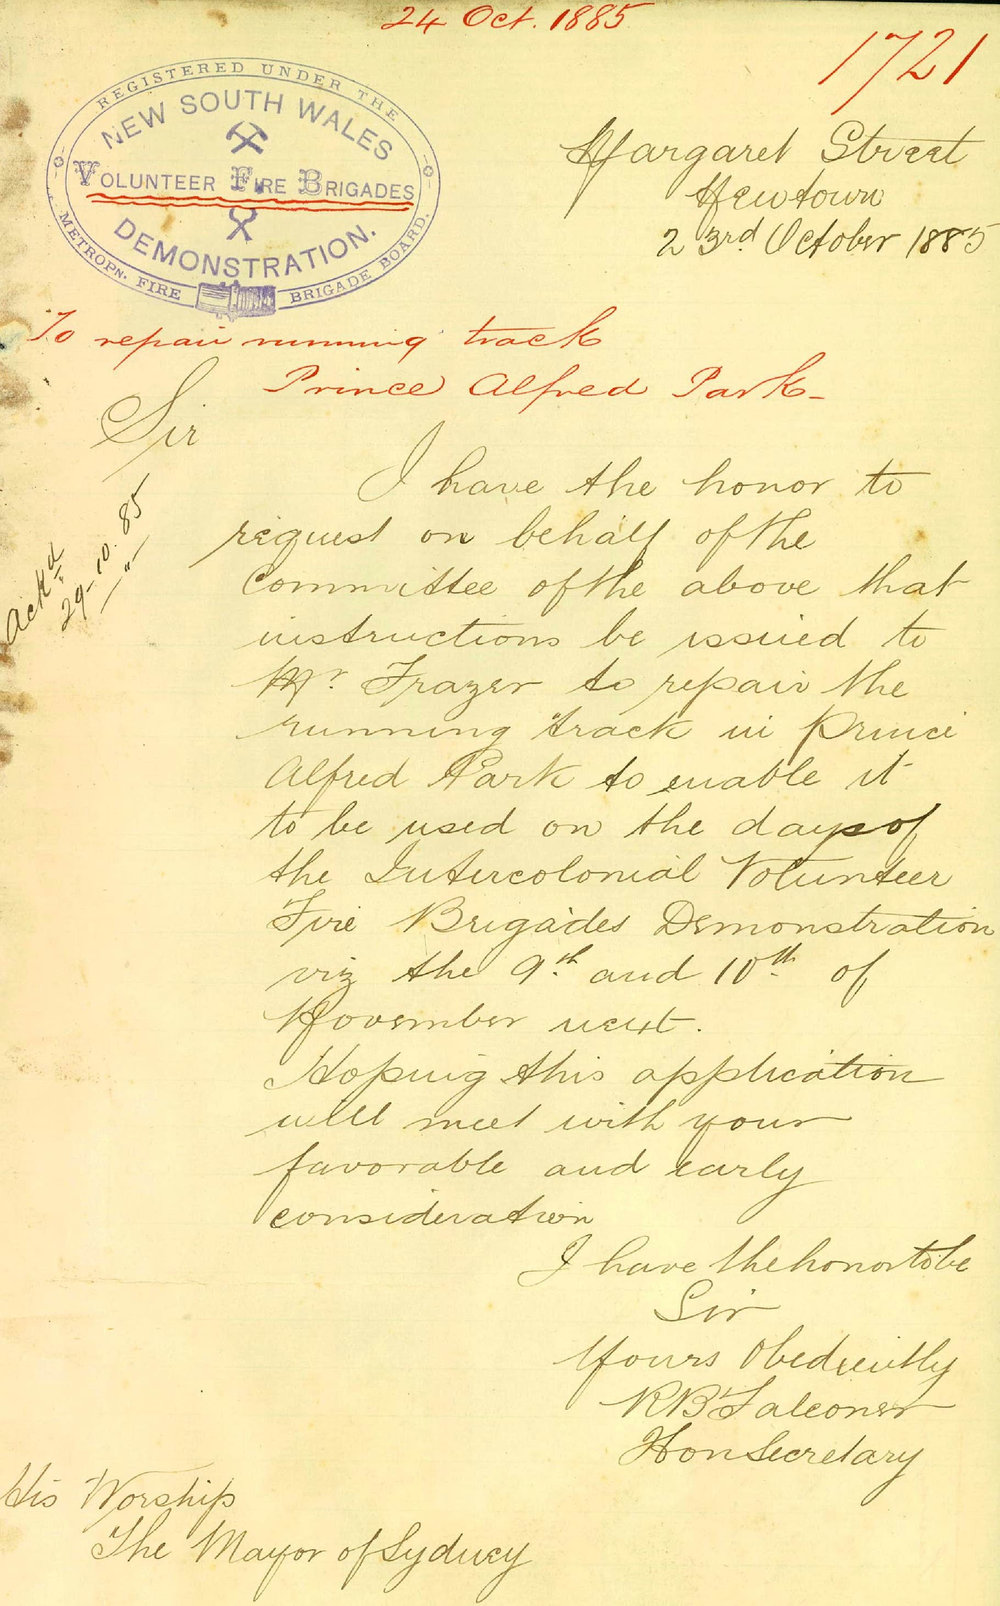 24 Oct. 1885
1721
REGISTERED UNDER THE
NEW SOUTH WALES
VOLUNTEER FIRE BRIGADES
DEMONSTRATION.
METROPN. FIRE BRIGADE BOARD.
Margaret Street
Newtown
23rd. October 1885
To repair running track
Prince Alfred Park -
Sir
Ackd
29-10.85
I have the honor to
request on behalf of the
Committee of the above that
instructions be issued to
Mr. Frazer to repair the
running track in Prince
Alfred Park to enable it
to be used on the days of
the Intercolonial Volunteer
Fire Brigades Demonstration
viz the 9.th and 10.th of
November next.
Hoping this application
will meet with your
favorable and early
consideration
I have the honor to be
Sir
Yours Obediently
RB Falconer
Hon Secretary
His Worship
The Mayor of Sydney